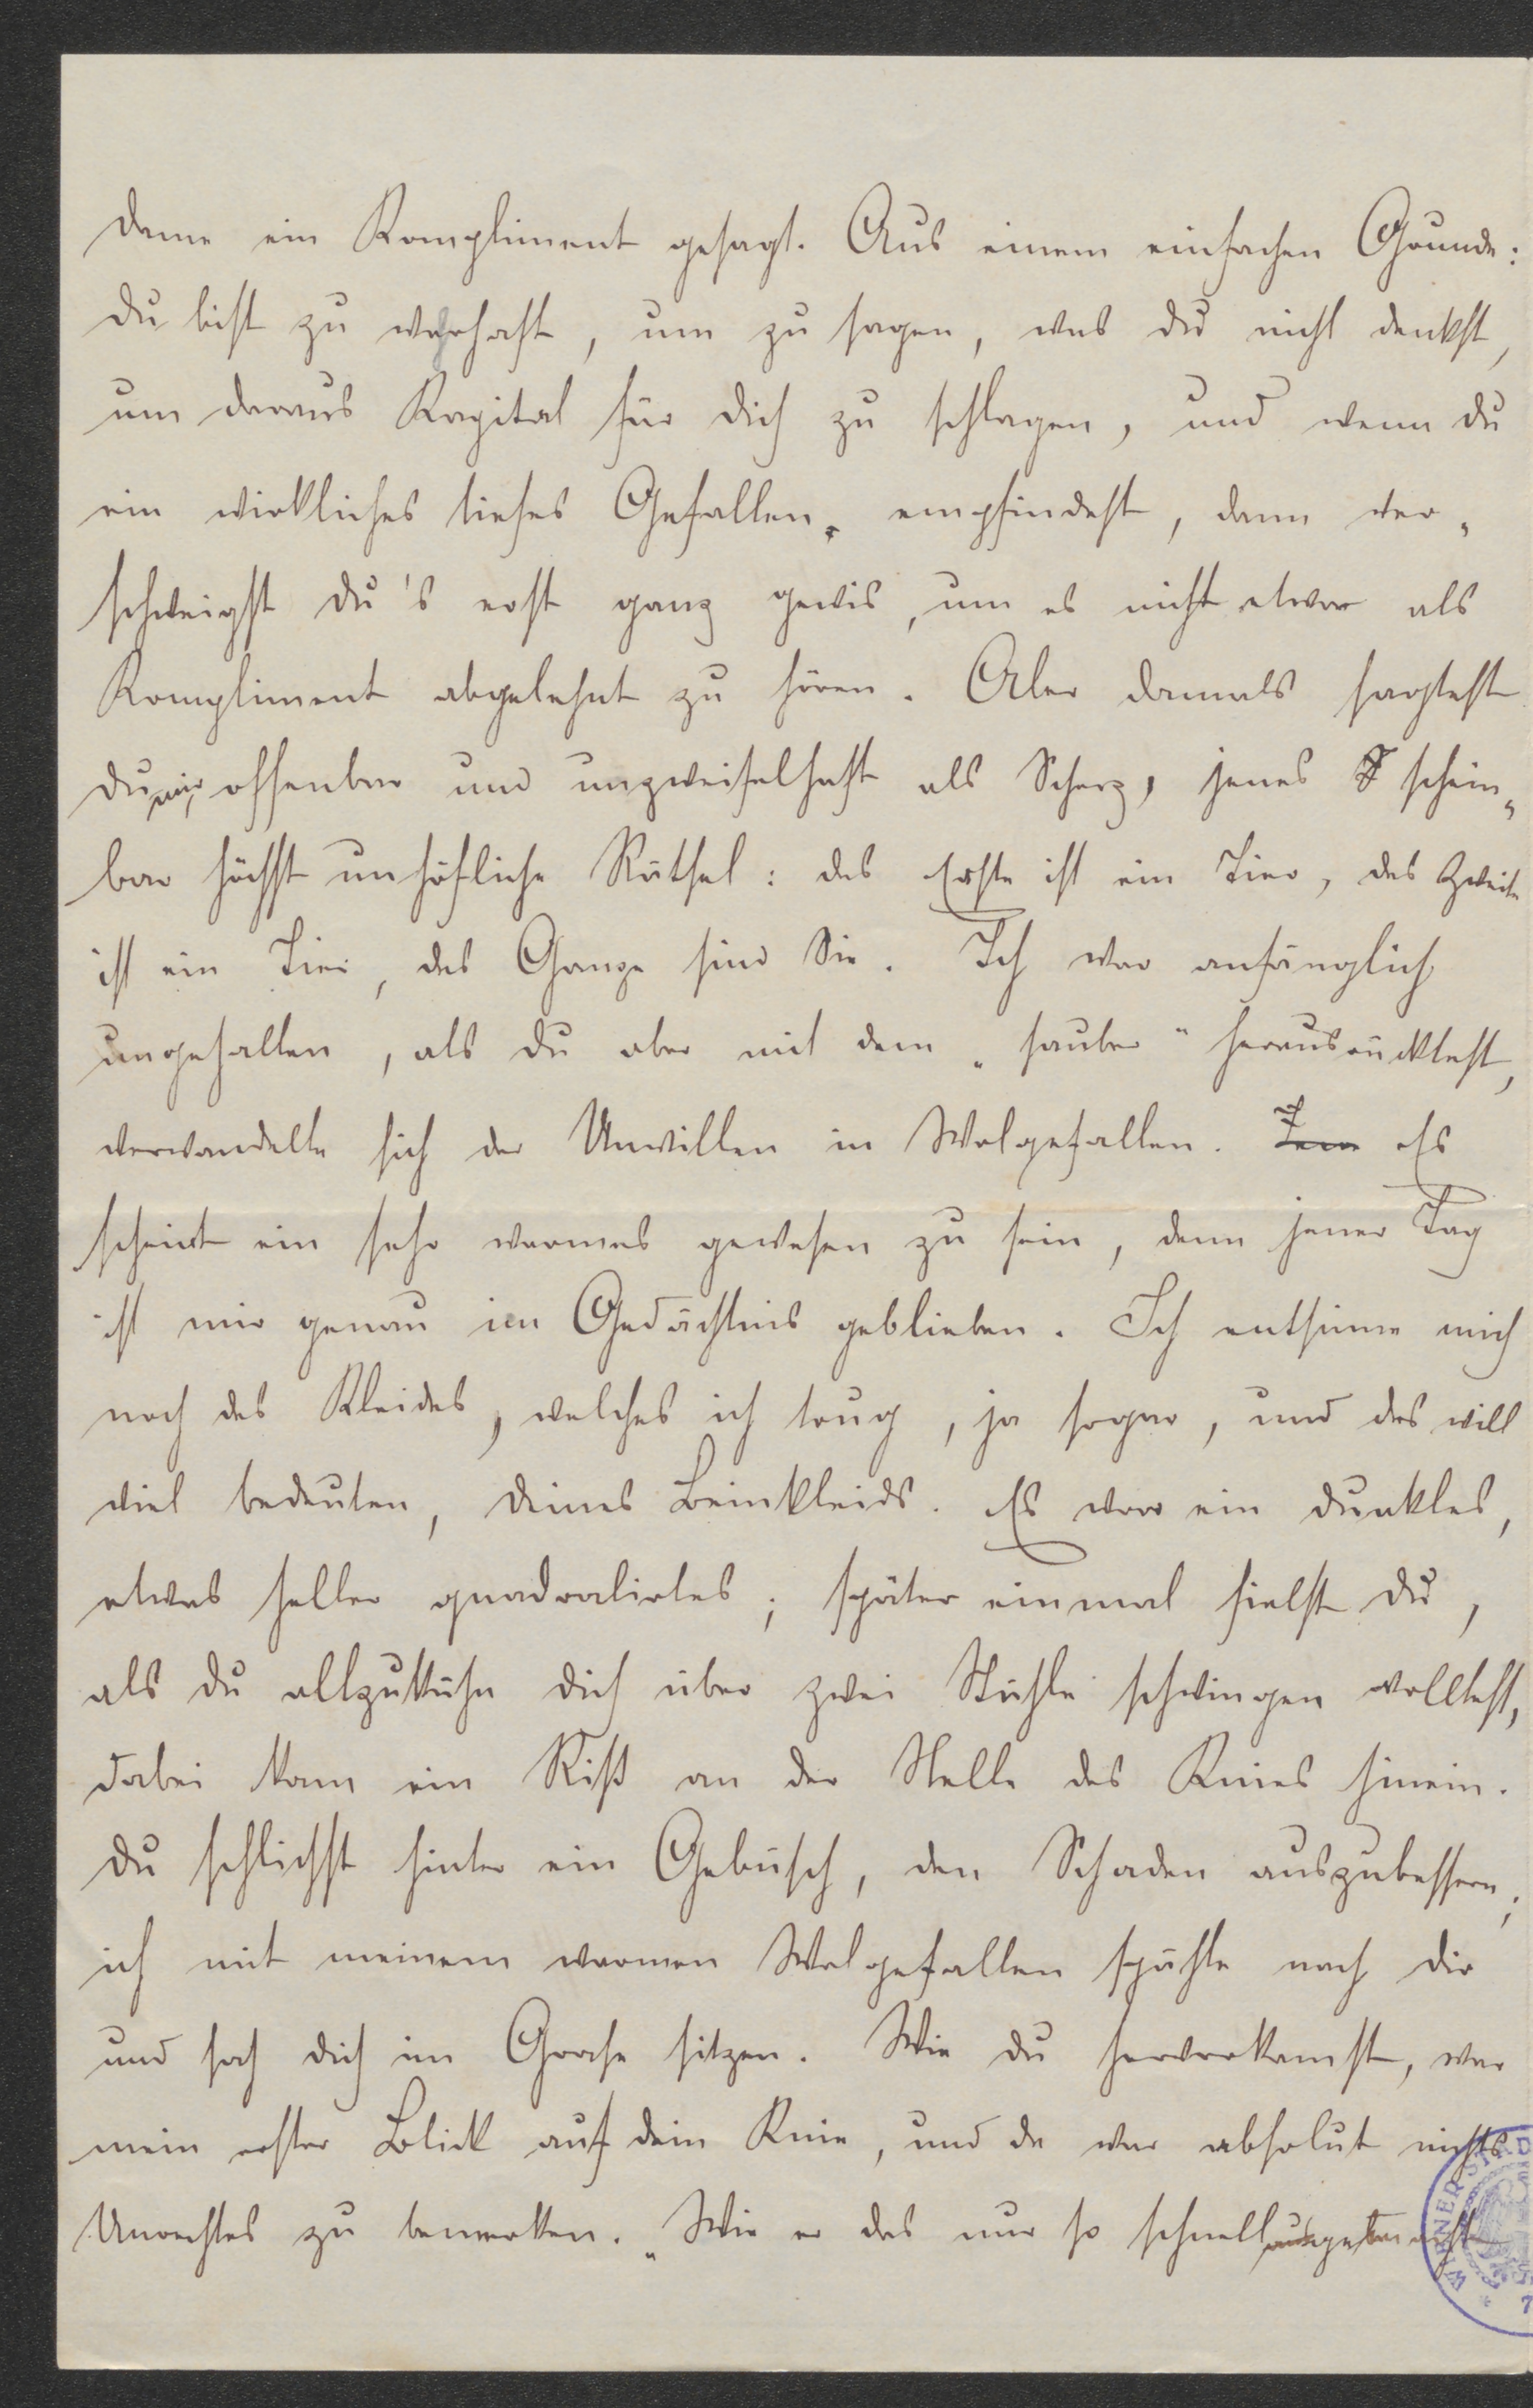 Dame ein Kompliment gesagt. Aus einem einfachen Grunde:
du bist zu wahrhaft, um zu sagen, was du nicht denkst,
um daraus Kapital für dich zu schlagen, und wenn du
ein wirkliches tiefes Gefallen empfindest, dann ver-
schweigst du's erst ganz gewis, um es nicht etwa als
Kompliment abgelehnt zu hören. Aber damals sagtest
du mir, offenbar und unzweifelhaft als Scherz, jenes schein-
bar höchst unhöfliche Rätsel: das Erste ist ein Tier, das Zweite
ist ein Tier, das Ganze sind Sie. Ich war anfänglich
ungehalten, als du aber mit dem „sauber" herausrücktest,
verwandelte sich der Unwillen in Wolgefallen. Es
scheint ein sehr warmes gewesen zu sein, denn jener Tag
ist mir genau im Gedächtnis geblieben. Ich entsinne mich
noch des Kleides, welches ich trug, ja sogar, und das will
viel bedeuten, deines Beinkleids. Es war ein dunkles,
etwas heller quadratirtes; später einmal fielst du,
als du allzukühn dich über zwei Stühle schwingen wolltest,
dabei kam ein Riß an der Stelle des Knies hinein.
Du schlichst hinter ein Gebüsch, den Schaden auszubessern,
ich mit meinem warmen Wolgefallen spähte nach dir
und sah dich im Grase sitzen. Wie du hervorkamst, war
mein erster Blick auf dein Knie, und da war absolut nichts
Unrechtes zu bemerken. „Wie er das nur so schnell